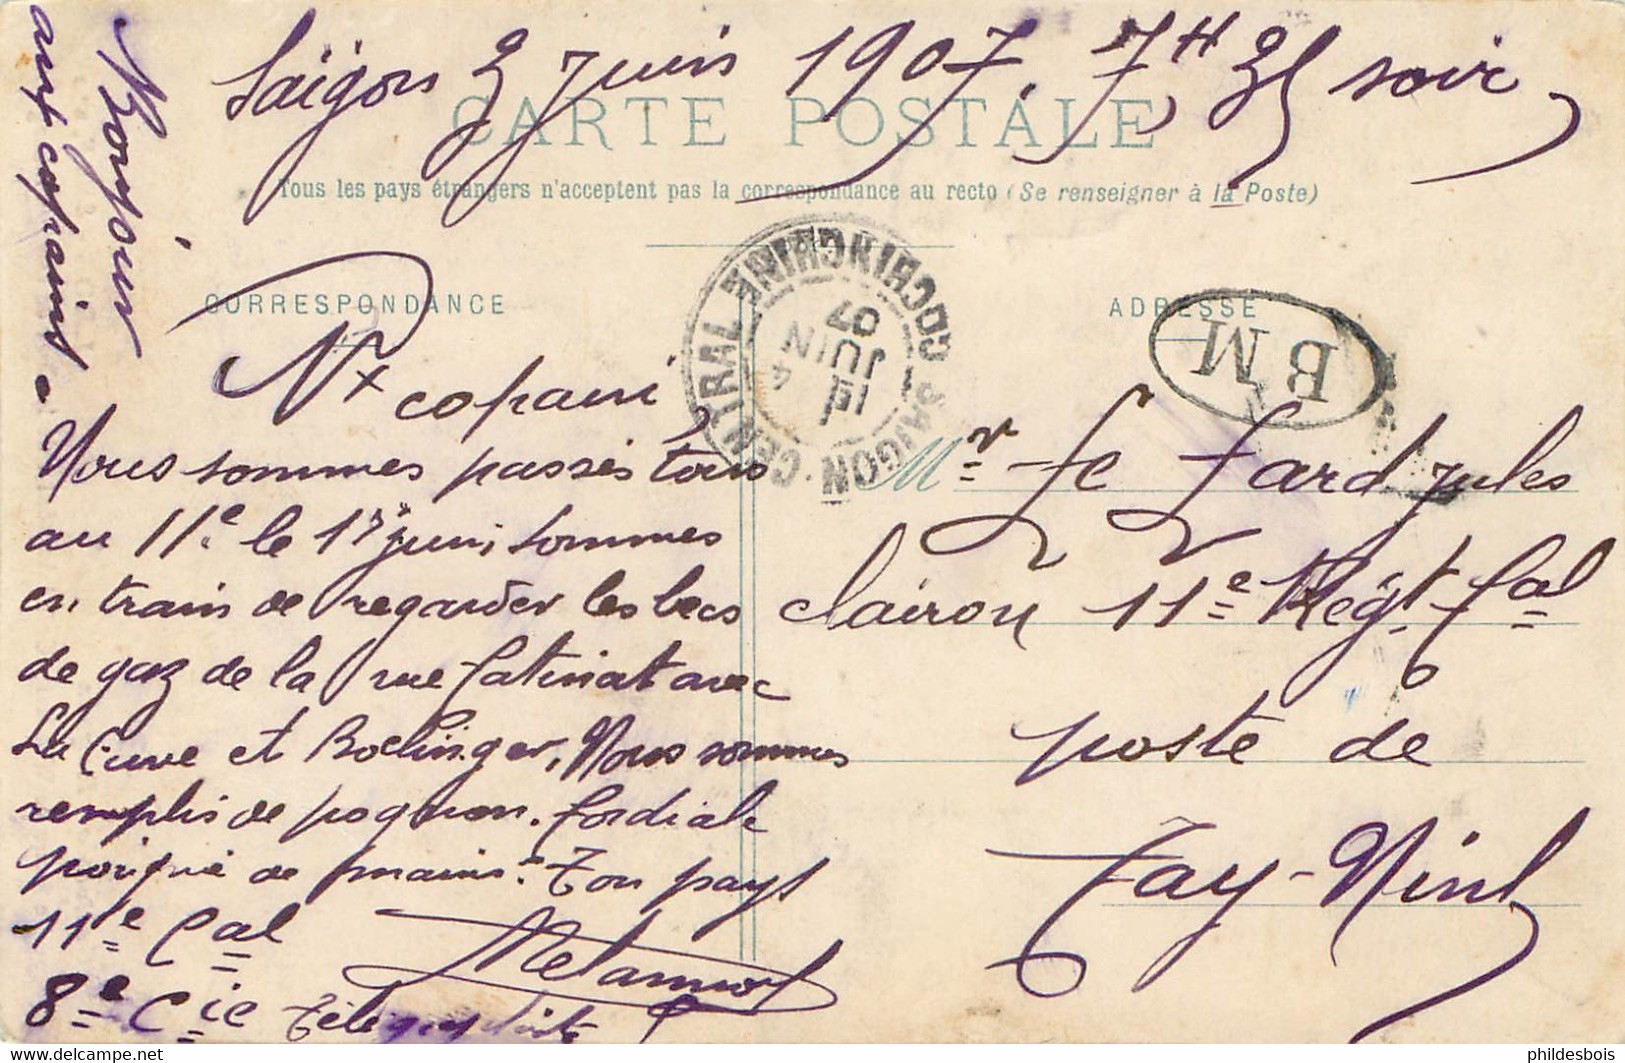 Saïgon 3 Juin 1907. 7H 35 soir
CARTE POSTALE
Tous les pays étrangers n'acceptent pas la correspondance au recto (Se renseigner à la Poste)
Bonjour
aux copains.
CORRESPONDANCE
Nx copain,
Nous sommes passés tous
au 11e. le 1er juin, sommes
en train de regarder les becs
de gaz de la rue Catinat avec
La Cuve et Roelinger, Nous sommes
remplis de pognon. Cordiale
poignée de mains. Ton pays
11e Cal
8e Cie Télégraphiste
ADRESSE
SAIGON-CENTRAL COCHINCHINE
1E
4
JUIN
07
BM
Mr Le Fard Jules
clairon 11e Régt. Cal
poste de
Tay-Ninh
delcampe.net
phildesbois